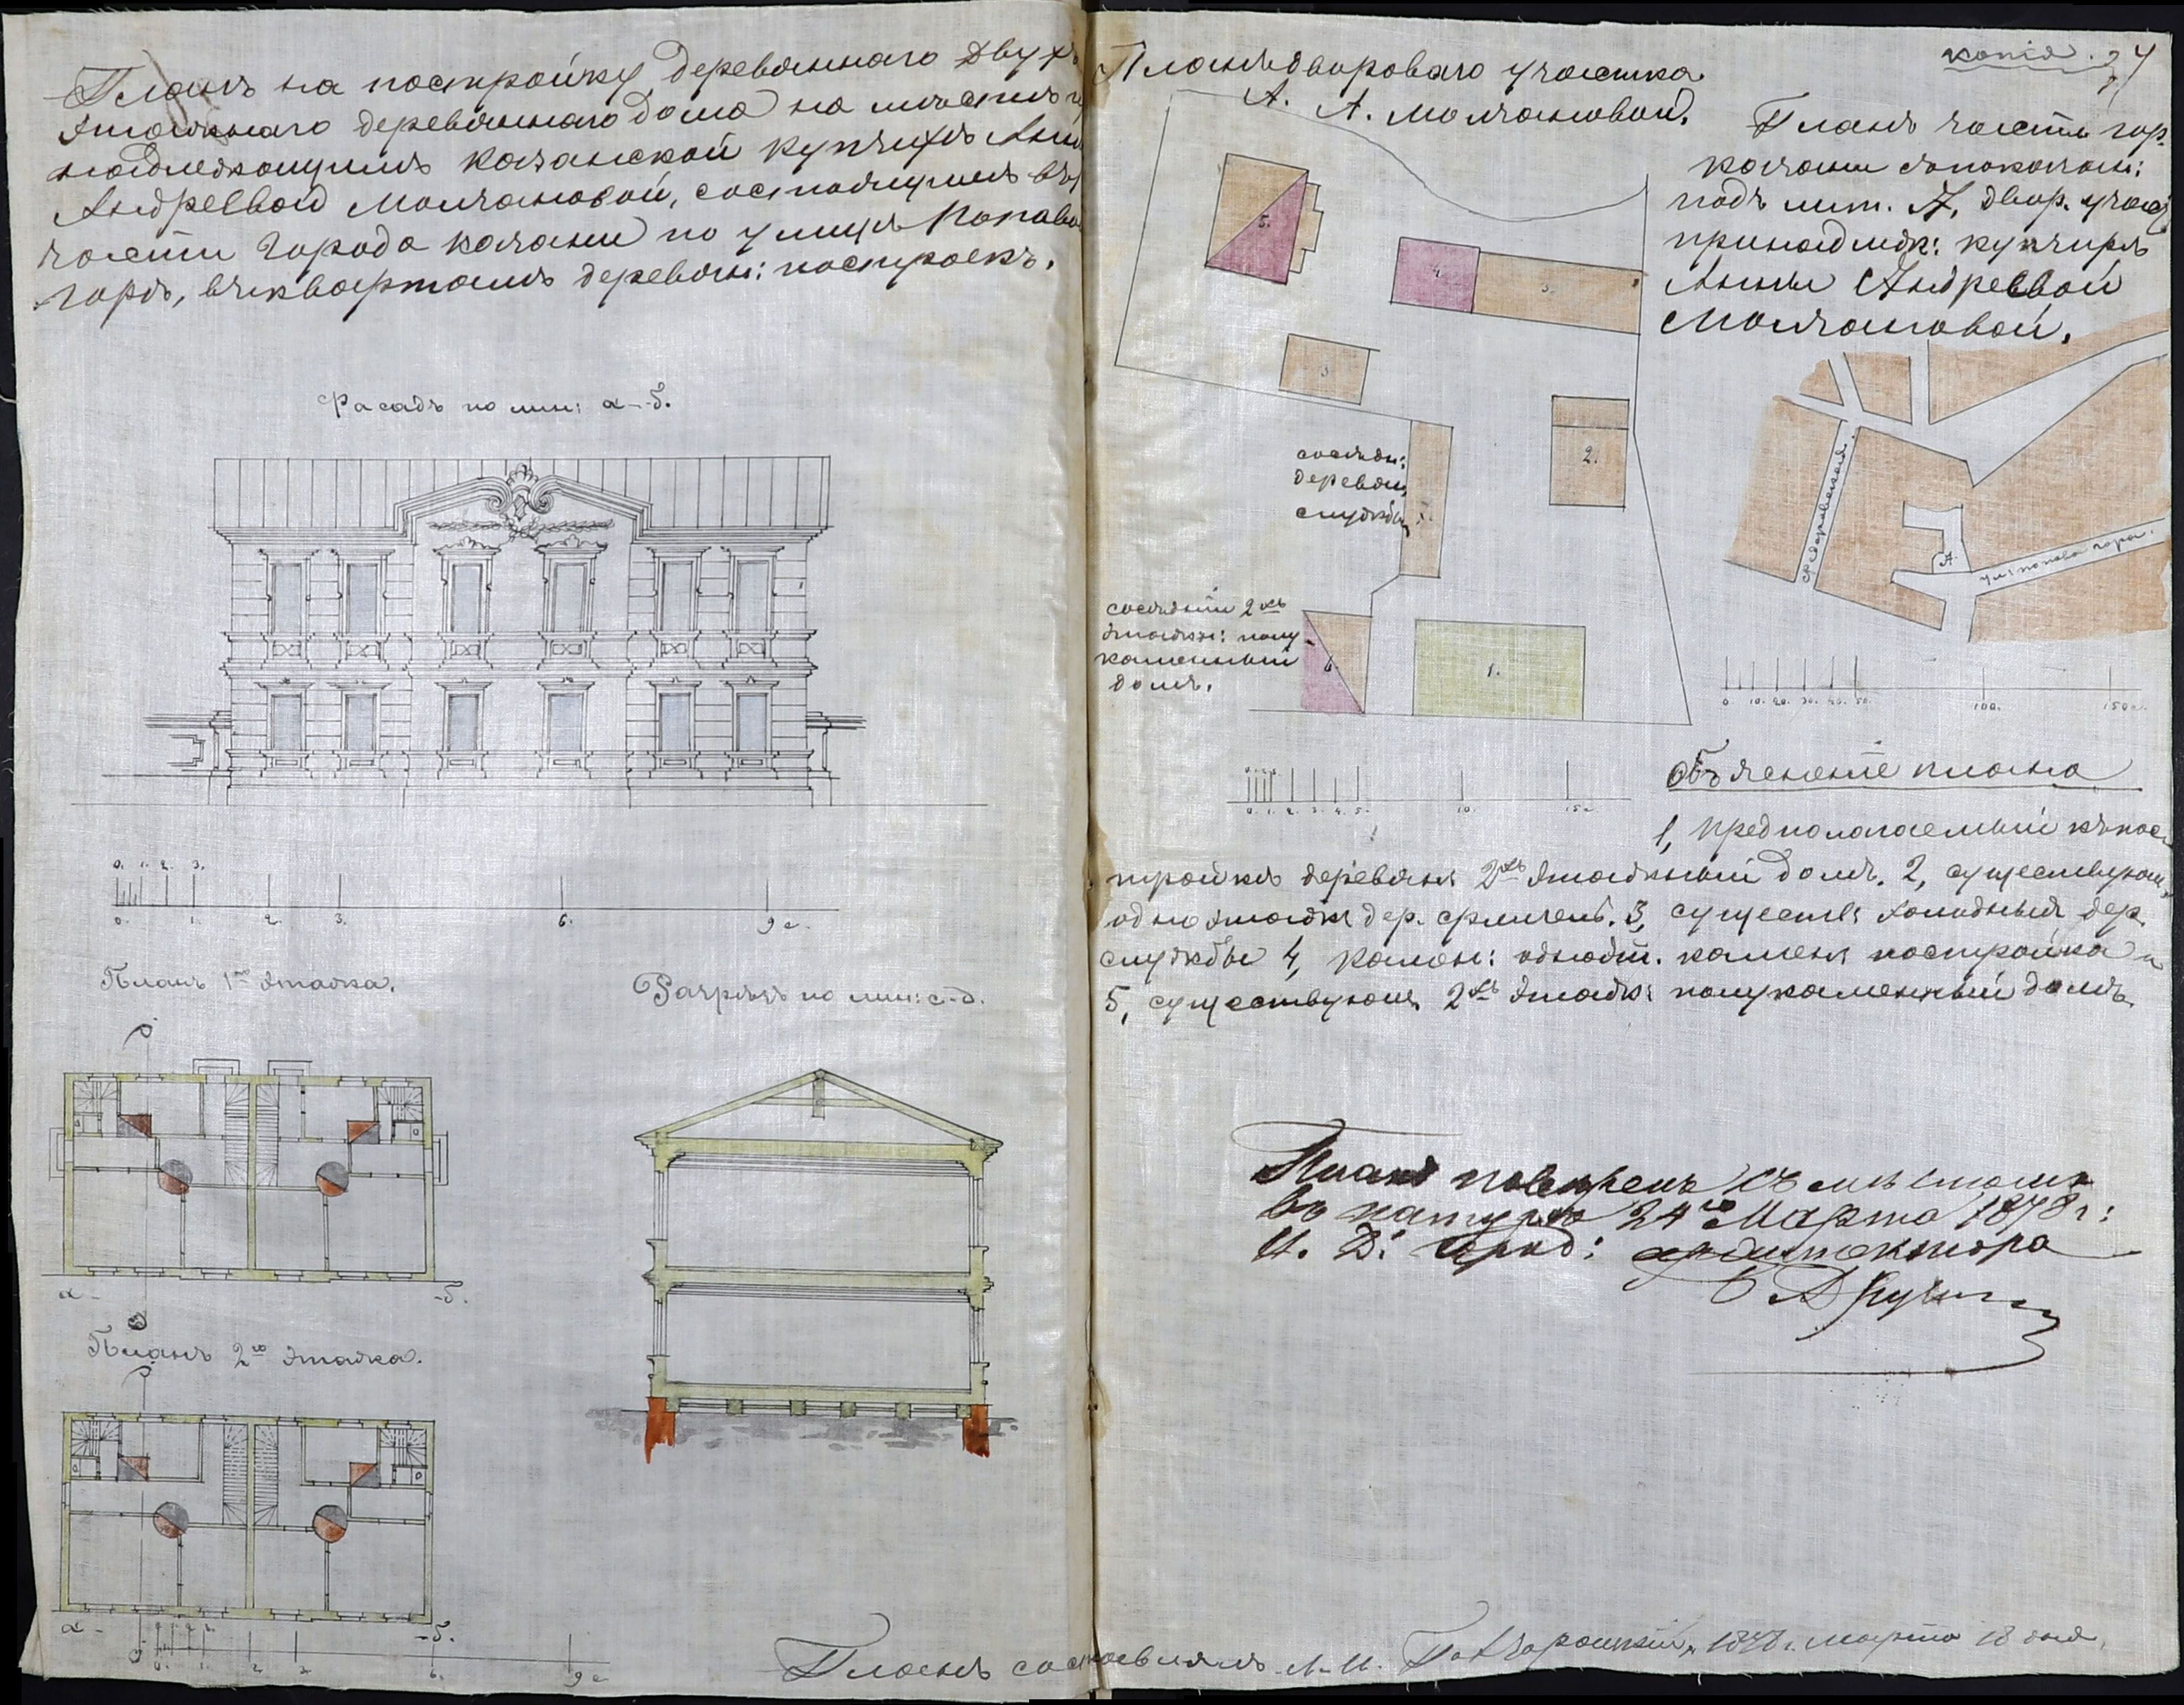 Планъ на постройку деревяннаго двухъ
этажнаго деревяннаго дома на мѣстѣ
надлежащимъ казанской купчихѣ Аннѣ
Андреевой Молчановой, состоящимъ въ
части города казани по улицѣ Попова
гора, въ кварталѣ деревян: построекъ.
Фасадъ по лин: а--б.
0. 1. 2. 3.
0. 1. 2. 3. 6. 9 с.
Планъ 1го этажа.
а - -б.
Разрѣзъ по лин: с-д.
Планъ 2го этажа.
а - -б.
6. 9 с
Планъ двороваго участка
А. А. Молчановой.
копія.
Планъ части гор.
казани съ показан:
подъ лит. А, двор. учас
принадлеж: купчихѣ
Анны Андреевой
Молчановой.
5.
4.
3.
3
2.
сосѣдн:
деревян,
службы
сосѣдній 2хъ
этажн: полу
каменный
домъ.
6.
1.
А.
ул: попова гора.
0. 10. 20. 30. 40. 50. 100. 150 с.
0. 1. 2. 3. 4. 5. 10. 15 с
Объясненіе плана
1, предполагаемый къ пос
тройкѣ деревян: 2хъ этажный домъ. 2, существующ.
одноэтажн: дер. флигель. 3, существ: холодныя дер.
службы 4, камен: одноэт. камен: постройка и
5, существующ. 2хъ этажн: полукаменный домъ
Планъ повѣренъ съ мѣстомъ
въ натурѣ 24го Марта 1878 г:
И. Д: Город: архитектора
Планъ составлялъ 1878 г. марта 18 дня.